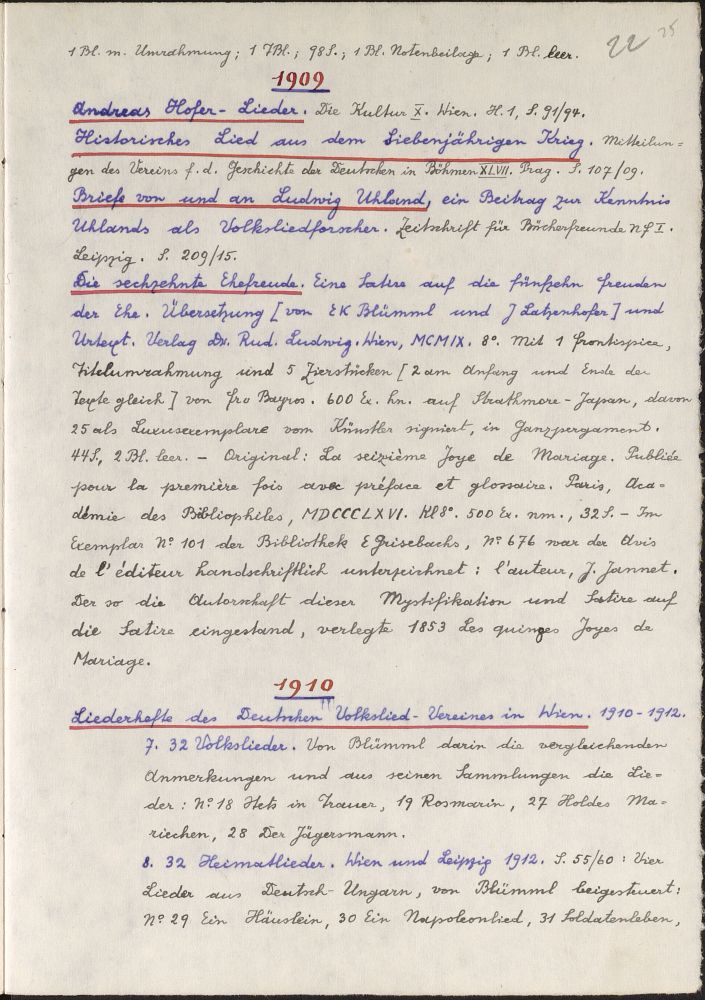 22 25
1 Bl. m. Umrahmung; 1 TBl.; 98 S.; 1 Bl. Notenbeilage; 1 Bl. leer.
1909
Andreas Hofer-Lieder. Die Kultur X. Wien. H. 1, S. 91/94.
Historisches Lied aus dem Siebenjährigen Krieg. Mitteilun=
gen des Vereins f. d. Geschichte der Deutschen in Böhmen XLVII. Prag. S. 107/09.
Briefe von und an Ludwig Uhland, ein Beitrag zur Kenntnis
Uhlands als Volksliedforscher. Zeitschrift für Bücherfreunde NF I.
Leipzig. S. 209/15.
Die sechzehnte Ehefreude. Eine Satire auf die fünfzehn Freuden
der Ehe. Übersetzung [von EK Blümml und J Latzenhofer] und
Urtext. Verlag Dr. Rud. Ludwig. Wien, MCMIX. 8°. Mit 1 Frontispice,
Titelumrahmung und 5 Zierstücken [2 am Anfang und Ende der
Texte gleich] von Frz Bayros. 600 Ex. hn. auf Strathmore-Japan, davon
25 als Luxusexemplare vom Künstler signiert, in Ganzpergament.
44 S., 2 Bl. leer. - Original: La seizième Joye de Mariage. Publiée
pour la première fois avec préface et glossaire. Paris, Aca=
démie des Bibliophiles, MDCCCLXVI. Kl 8°. 500 Ex. nm., 32 S. - Im
Exemplar N° 101 der Bibliothek E Grisebachs, N° 676 war der Avis
de l'éditeur handschriftlich unterzeichnet: l'auteur, J. Jannet.
Der so die Autorschaft dieser Mystifikation und Satire auf
die Satire eingestand, verlegte 1853 Les quinzes Joyes de
Mariage.
1910
Liederhefte des Deutschen Volkslied-Vereines in Wien. 1910-1912.
7. 32 Volkslieder. Von Blümml darin die vergleichenden
Anmerkungen und aus seinen Sammlungen die Lie=
der: N° 18 Stets in Trauer, 19 Rosmarin, 27 Holdes Ma=
riechen, 28 Der Jägersmann.
8. 32 Heimatlieder. Wien und Leipzig 1912. S. 55/60: Vier
Lieder aus Deutsch-Ungarn, von Blümml beigesteuert:
N° 29 Ein Häuslein, 30 Ein Napoleonlied, 31 Soldatenleben,